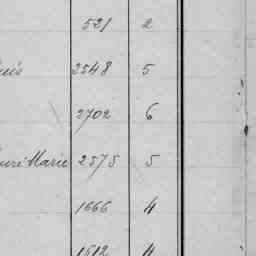 521 2
2548 5
2702 6
Marie 2575 5
1666 4
1612 4